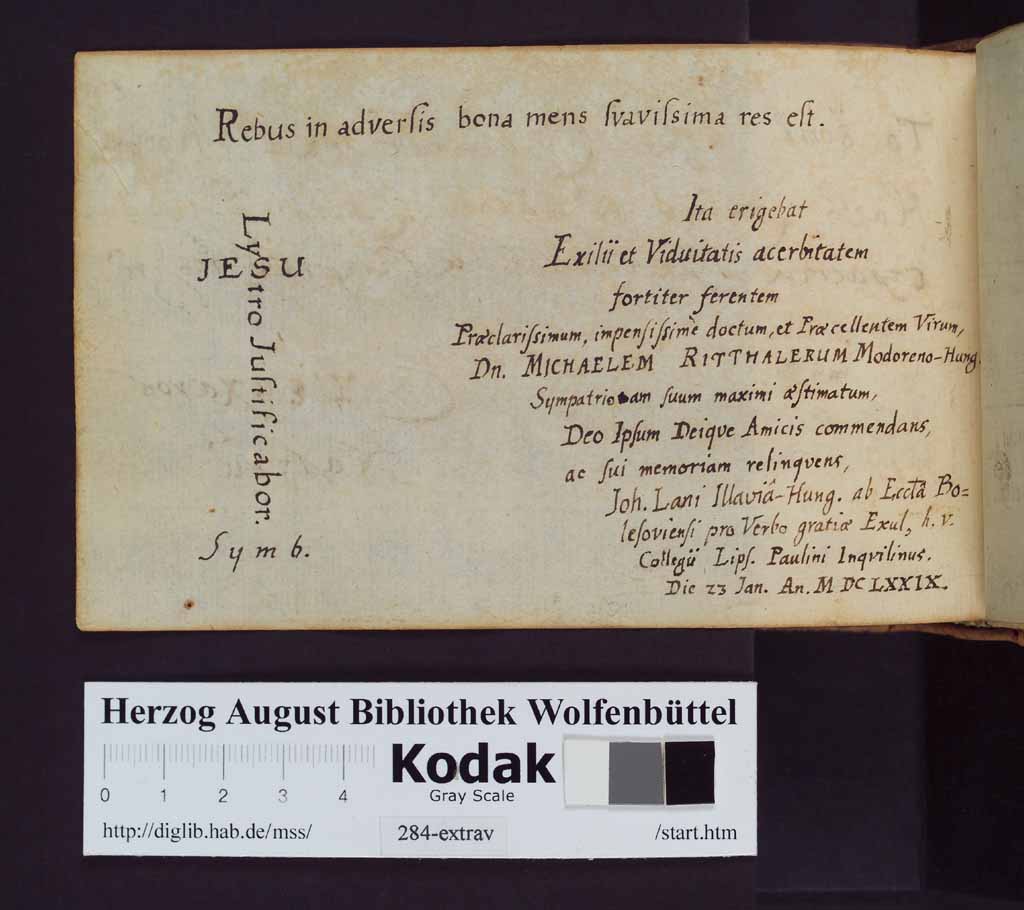 Rebus in adverſis bona mens ſvaviſsima res eſt.
Lystro Juſtificabor.
JESU
Symb.
Ita erigebat
Exilii et Viduitatis acerbitatem
fortiter ferentem
Præclariſsimum, impenſiſsimè doctum, et Præcellentem Virum,
Dn. MICHAELEM RITTHALERUM Modoreno-Hung.
Sympatriotam ſuum maximi æſtimatum,
Deo Ipſum Deique Amicis commendans,
ac ſui memoriam relinqvens,
Joh. Lani Illaviâ-Hung. ab Eccła Bo=
leſovienſi pro Verbo gratiæ Exul, h. v.
Collegii Lipſ. Paulini Inqvilinus.
Die 23 Jan. An. M DC LXXIX.
Herzog August Bibliothek Wolfenbüttel
0 1 2 3 4
Kodak
Gray Scale
http://diglib.hab.de/mss/ 284-extrav /start.htm